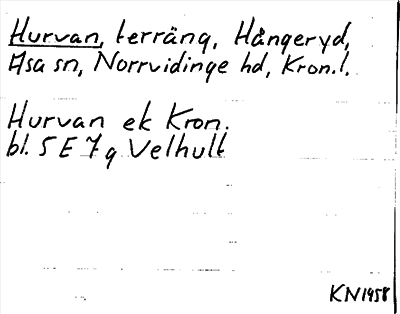 Hurvan, terräng, Hångeryd,
Asa sn, Norrvidinge hd, Kron.l.
Hurvan ek Kron.
bl. 5 E 7 g Velhult
KN1958